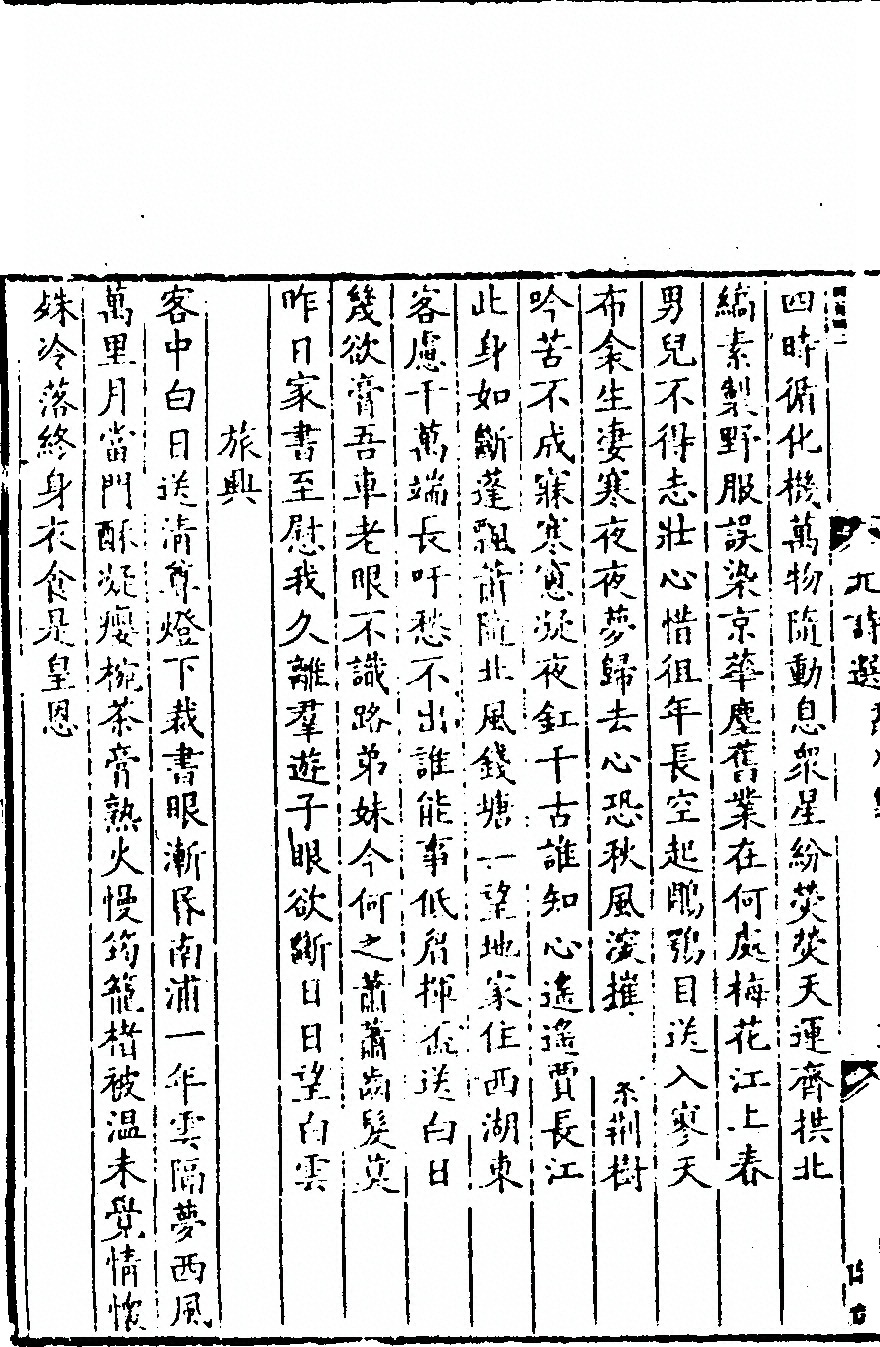 四時循化機萬物隨動息衆星紛熒熒天運齊拱北
縞素製野服誤染京華塵舊業在何處梅花江上春
男兒不得志壯心惜徂年長空起鵰鶚目送入寒天
布衾生凄寒夜夜夢歸去心恐秋風深摧 紫荆樹
吟苦不成寐寒窻凝夜釭千古誰知心遙遙賈長江
此身如斷蓬飄蕭隨北風錢塘一望地家住西湖東
客慮千萬端長吁愁不出誰能事低眉揮盃送白日
幾欲膏吾車老眼不識路弟妹今何之蕭蕭齒髮莫
昨日家書至慰我久離羣遊子眼欲斷日日望白雲
旅興
客中白日送清尊燈下裁書眼漸昏南浦一年雲隔夢西風
萬里月當門酥凝癭椀茶膏熟火慢筠籠楮被温未覺情懷
姝冷落終身衣食是皇恩
元詩選